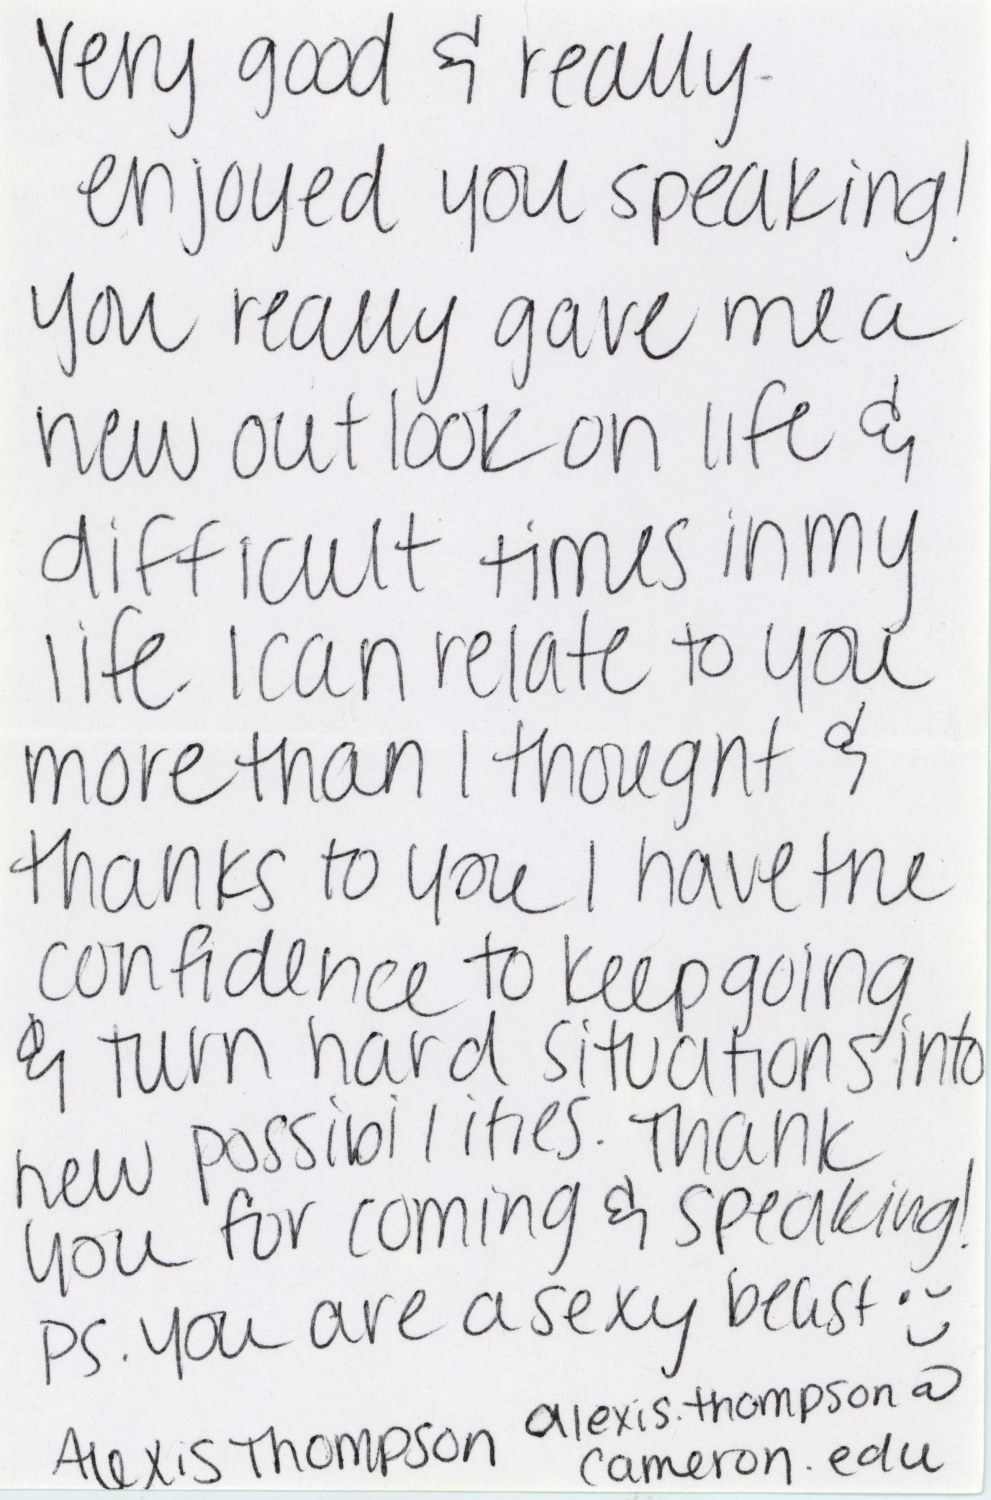 Very good & really
enjoyed you speaking!
you really gave me a
new outlook on life &
difficult times in my
life. I can relate to you
more than I thought &
thanks to you I have the
confidence to keep going
& turn hard situations into
new possibilities. Thank
you for coming & speaking!
PS. you are a sexy beast
Alexis Thompson alexis.thompson@
cameron.edu